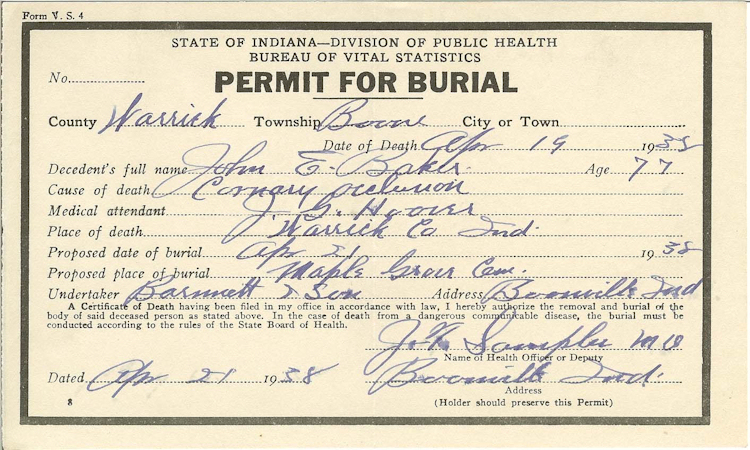 Form V. S. 4
STATE OF INDIANA—DIVISION OF PUBLIC HEALTH
BUREAU OF VITAL STATISTICS
No.
PERMIT FOR BURIAL
County Warrick Township Boone City or Town
Date of Death Apr 19 1938
Decedent's full name John E. Baker Age 77
Cause of death Cornary occlusion
Medical attendant J. G. Hoover
Place of death Warrick Co Ind.
Proposed date of burial Apr 21 1938
Proposed place of burial Maple Grove Cem.
Undertaker Barnett & Son Address Boonville Ind
A Certificate of Death having been filed in my office in accordance with law, I hereby authorize the removal and burial of the
body of said deceased person as stated above. In the case of death from a dangerous communicable disease, the burial must be
conducted according to the rules of the State Board of Health.
J. MD
Name of Health Officer or Deputy
Dated Apr 21 1938 Boonville Ind.
Address
8 (Holder should preserve this Permit)